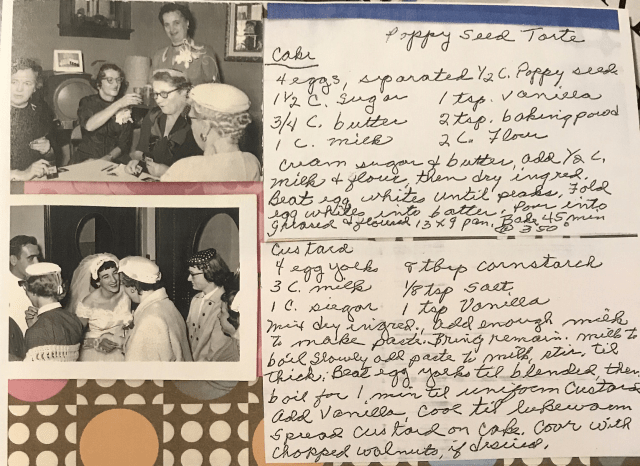 Poppy Seed Torte
Cake
4 eggs, siparated 1/2 C. Poppy seeds
1 1/2 C. Sugar 1 tsp. Vanilla
3/4 C. butter 2 tsp. baking powd
1 C. milk 2 C. Flour
Cream sugar & butter, add 1/2 C.
milk & flour then dry ingred.
Beat egg whites until peaks. Fold
egg whites into batter. Pour into
greased & floured 13 x 9 pan. Bake 45 min
@ 350°
Custard
4 egg yolks 8 tbsp cornstarch
3 C. milk 1/8 tsp Salt
1 C. sugar 1 tsp Vanilla
Mix dry ingred., add enough milk
to make paste. Bring remain. milk to
boil slowly add paste to milk, stir, til
thick. Beat egg yolks til blended then
boil for 1 min til uniform Custard
Add Vanilla. Cool til lukewarm
Spread custard on cake. Covr with
Chopped walnuts, if desired.